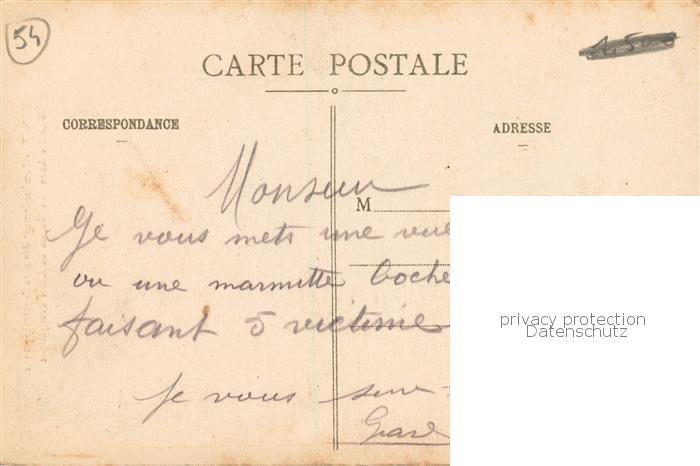 54
CARTE POSTALE
CORRESPONDANCE
ADRESSE
Monsieur
M
Je vous mets une vue
ou une marmitte boche
faisant 5 victime
je vous
privacy protection
Datenschutz